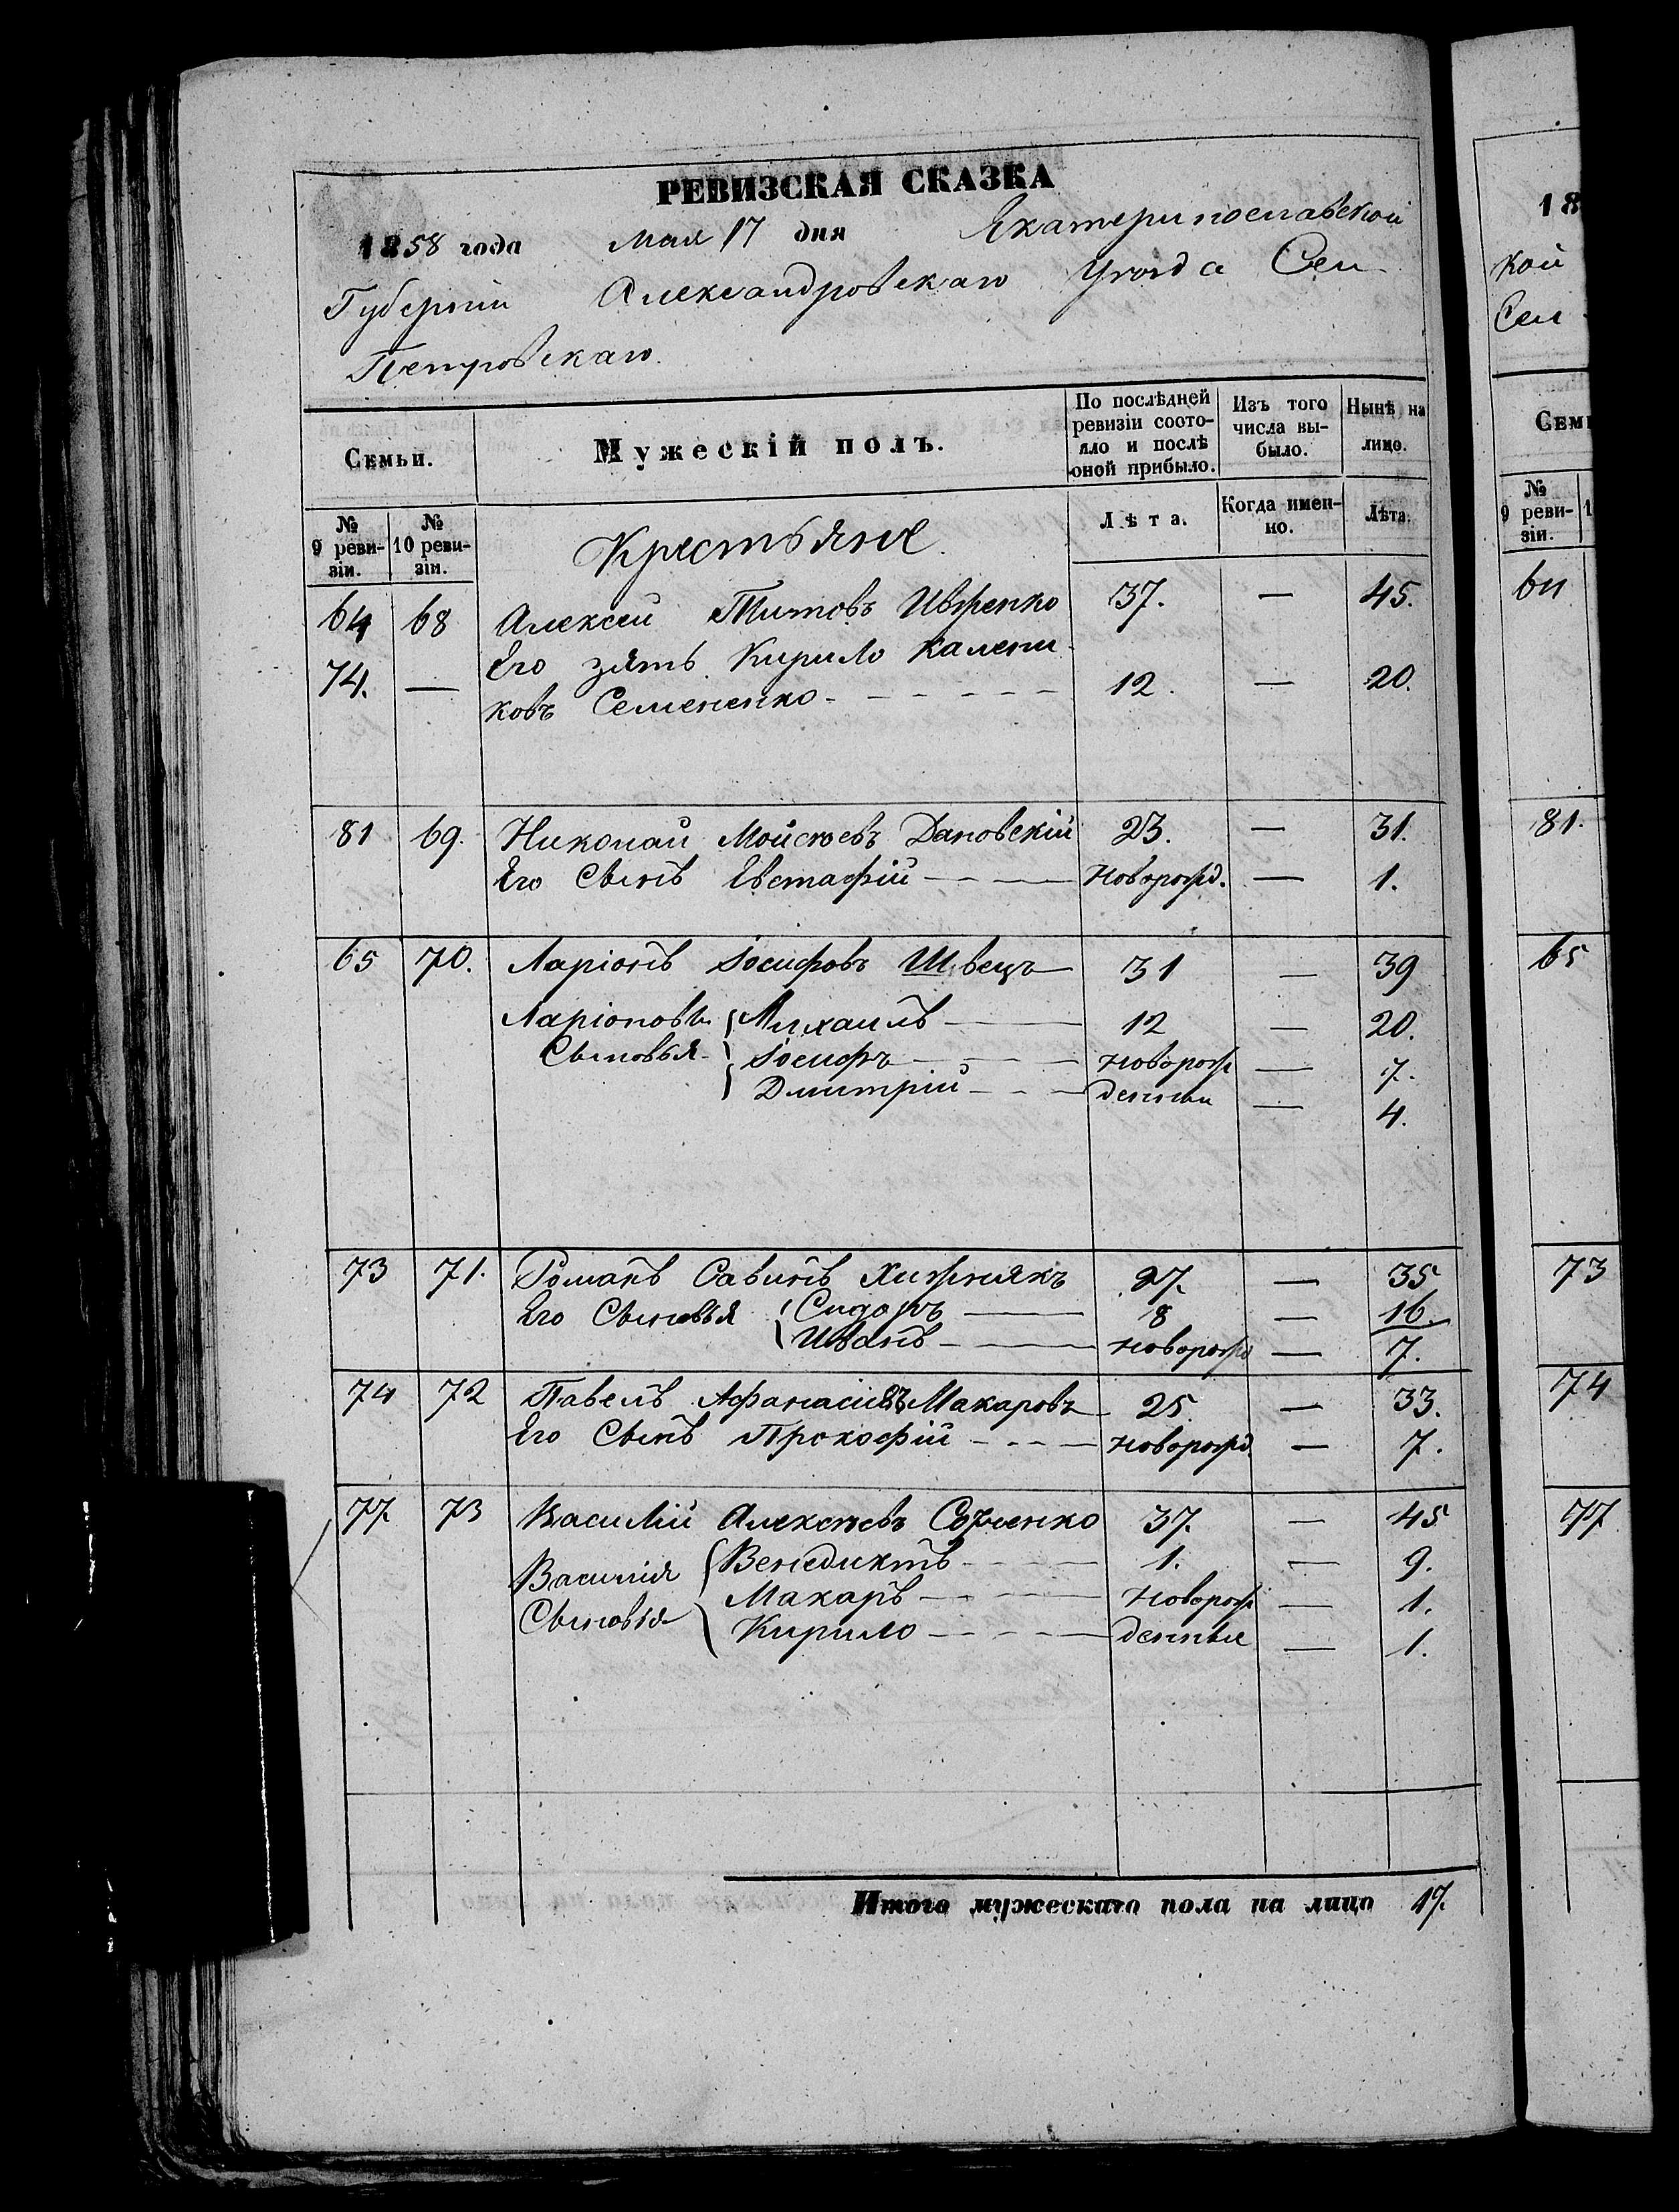 РЕВИЗСКАЯ СКАЗКА
1858 года Мая 17 дня Екатеринославской
Губерніи Александровскаго Уѣзда Сел
Петровскаго.
Семьи.
Мужескій полъ.
По послѣдней ревизіи состояло и послѣ оной прибыло.
Изъ того числа выбыло.
Нынѣ на лицо.
№ 9 ревизіи.
№ 10 ревизіи.
Крестьяне.
Лѣта.
Когда именно.
Лѣта.
64 68 Алексей Титовъ Ивженко 37. — 45.
74. — Его зять Кирило Калени
ковъ Семененко 12. — 20.
81 69. Николай Мойсѣевъ Дановскій 23. — 31.
Его Сынъ Евстафій Новорожд. — 1.
65 70. Ларіонъ Іосифовъ Швецъ 31 — 39
Ларіоновы Михаилъ 12 — 20.
Сыновья Іосифъ новорож — 7.
Дмитрій денны — 4.
73 71. Романъ Савинъ Хижнякъ 27. — 35
Его Сыновья Сидоръ 8 — 16.
Иванъ новорожд — 7.
74 72 Павелъ Афанасіевъ Макаровъ 25 — 33.
Его Сынъ Прокофій новорожд. — 7.
77 73 Василій Алексѣевъ 37. — 45
Василія Венедиктъ 1. — 9.
Сыновья Макаръ Новорож — 1.
Кирило денные — 1.
Итого мужескаго пола на лицо 17.
18
кой
Сел
Семь
№
9 реви-
зіи.
1
64
81.
65
73
74
77